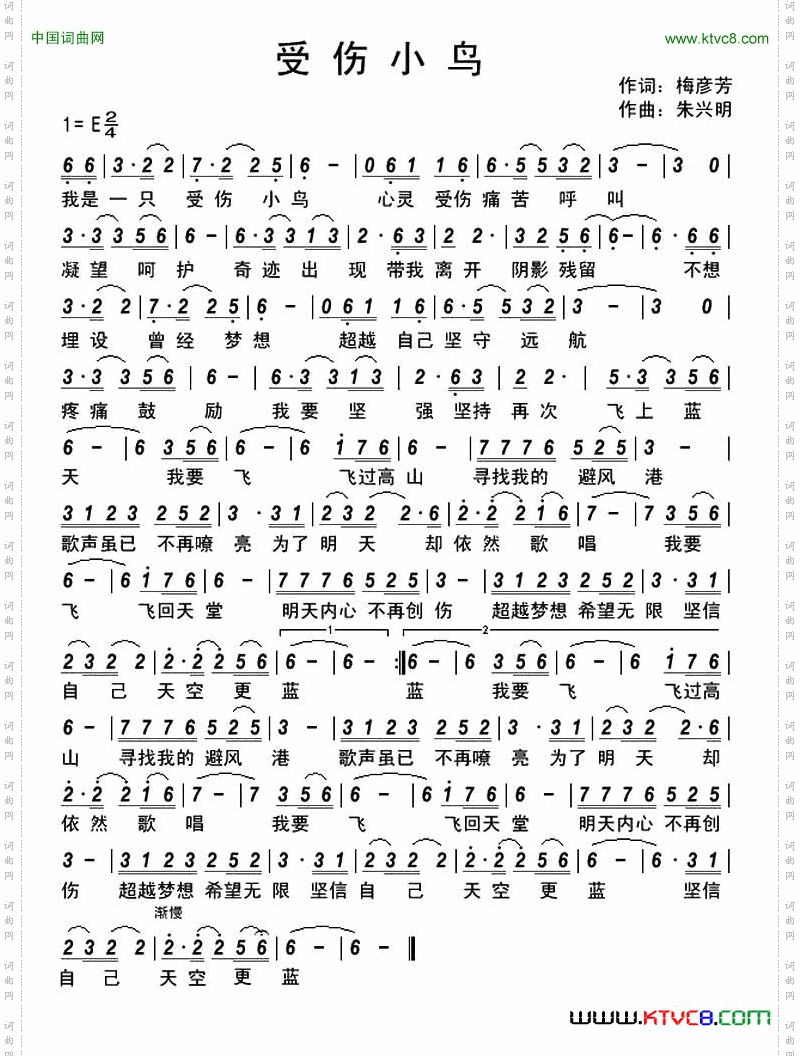 中国词曲网
www.ktvc8.com
受伤小鸟
作词：梅彦芳
作曲：朱兴明
1=E 2/4
6 6 | 3·2 2 | 7·2 2 5 | 6 - | 0 6 1 1 6 | 6·5 5 3 2 | 3 - | 3 0 |
我是一只 受伤 小鸟 心灵 受伤痛苦 呼 叫
3·3 3 5 6 | 6 - | 6·3 3 1 3 | 2·6 3 | 2 2· | 3 2 5 6 | 6 - | 6·6 3 |
凝望 呵护 奇迹出 现 带我离开 阴影残留 不想
3·2 2 | 7·2 2 5 | 6 - | 0 6 1 1 6 | 6·5 5 3 2 | 3 - | 3 0 |
埋设 曾经 梦想 超越 自己坚守 远航
3·3 3 5 6 | 6 - | 6·3 3 1 3 | 2·6 3 | 2 2· | 5·3 3 5 6 |
疼痛鼓 励 我要坚 强 坚持再次 飞上蓝
6 - | 6 3 5 6 | 6 - | 6 1 7 6 | 6 - | 7 7 7 6 5 2 5 | 3 - |
天 我要飞 飞过高山 寻找我的 避风港
3 1 2 3 2 5 2 | 3·3 1 | 2 3 2 2·6 | 2·2 2 1 6 | 7 - | 7 3 5 6 |
歌声虽已 不再嘹亮 为了明天 却依然 歌唱 我要
6 - | 6 1 7 6 | 6 - | 7 7 7 6 5 2 5 | 3 - | 3 1 2 3 2 5 2 | 3·3 1 |
飞 飞回天堂 明天内心 不再创伤 超越梦想 希望无限 坚信
1 2
2 3 2 2 | 2·2 2 5 6 | 6 - | 6 - :‖ 6 - | 6 3 5 6 | 6 - | 6 1 7 6 |
自己 天空更蓝 蓝 我要飞 飞过高
6 - | 7 7 7 6 5 2 5 | 3 - | 3 1 2 3 2 5 2 | 3·3 1 | 2 3 2 2·6 |
山 寻找我的 避风港 歌声虽已 不再嘹亮 为了明天 却
2·2 2 1 6 | 7 - | 7 3 5 6 | 6 - | 6 1 7 6 | 6 - | 7 7 7 6 5 2 5 |
依然 歌唱 我要飞 飞回天堂 明天内心 不再创
3 - | 3 1 2 3 2 5 2 | 3·3 1 | 2 3 2 2 | 2·2 2 5 6 | 6 - | 6·3 1 |
伤 超越梦想 希望无限 坚信自己 天空更蓝 坚信
渐慢
2 3 2 2 | 2·2 2 5 6 | 6 - | 6 - ‖
自己 天空更蓝
www.KTVC8.com